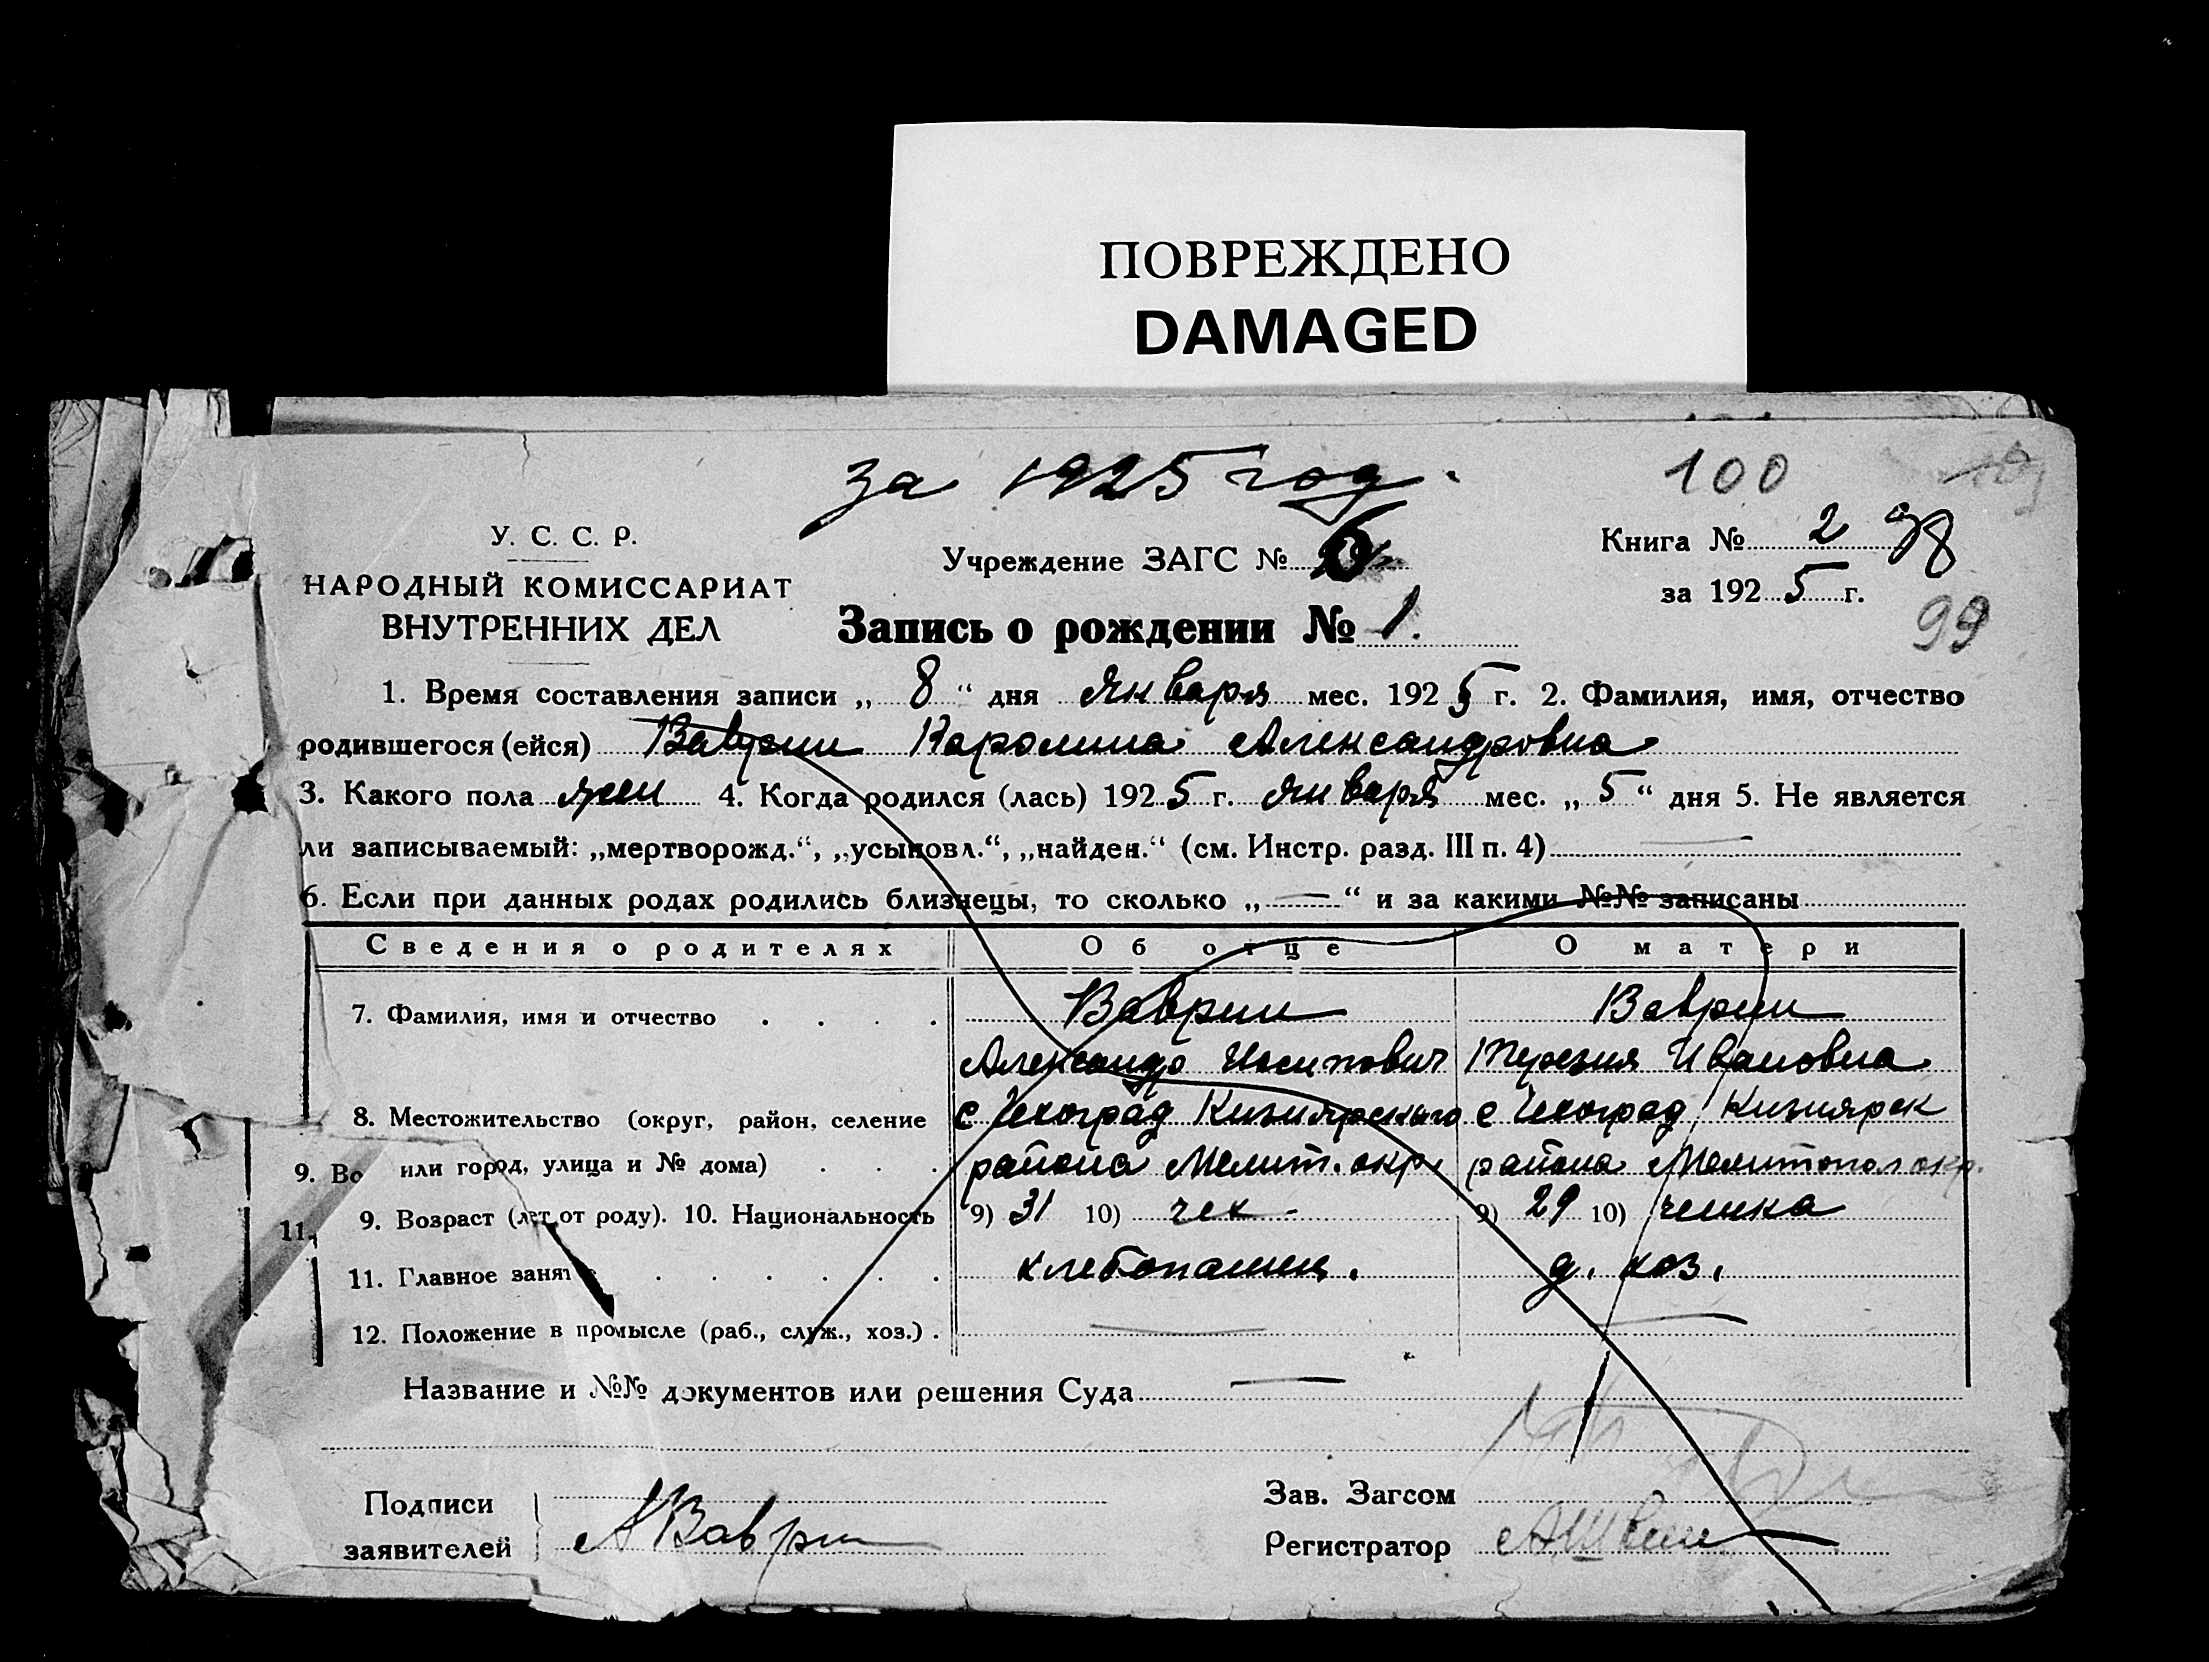 ПОВРЕЖДЕНО
DAMAGED
за 1925 год.
100
У. С. С. Р.
НАРОДНЫЙ КОМИССАРИАТ
ВНУТРЕННИХ ДЕЛ
Учреждение ЗАГС № 6
Книга № 2 98
за 1925 г.
99
Запись о рождении № 1.
1. Время составления записи „ 8 “ дня Января мес. 1925 г. 2. Фамилия, имя, отчество
родившегося (ейся) Ваврин Каролина Александровна
3. Какого пола жен 4. Когда родился (лась) 1925 г. января мес. „ 5 “ дня 5. Не является
ли записываемый: „мертворожд.“, „усыновл.“, „найден.“ (см. Инстр. разд. III п. 4) —
6. Если при данных родах родились близнецы, то сколько „ — “ и за какими №№ записаны
Сведения о родителях Об отце О матери
7. Фамилия, имя и отчество . . . . Ваврин Ваврин
Александр Иосипович Терезия Ивановна
8. Местожительство (округ, район, селение с Чехоград Кизиярского с Чехоград Кизиярск
9. Во или город, улица и № дома) . . . района Мелит. окр. района Мелитопол окр.
11. 9. Возраст (лет от роду). 10. Национальность 9) 31 10) чех - 9) 29 10) чешка
11. Главное занят . . . . . . хлебопашец. д. хоз.
12. Положение в промысле (раб., служ., хоз.) . — —
Название и №№ документов или решения Суда —
Подписи
заявителей АВаврин
Зав. Загсом
Регистратор